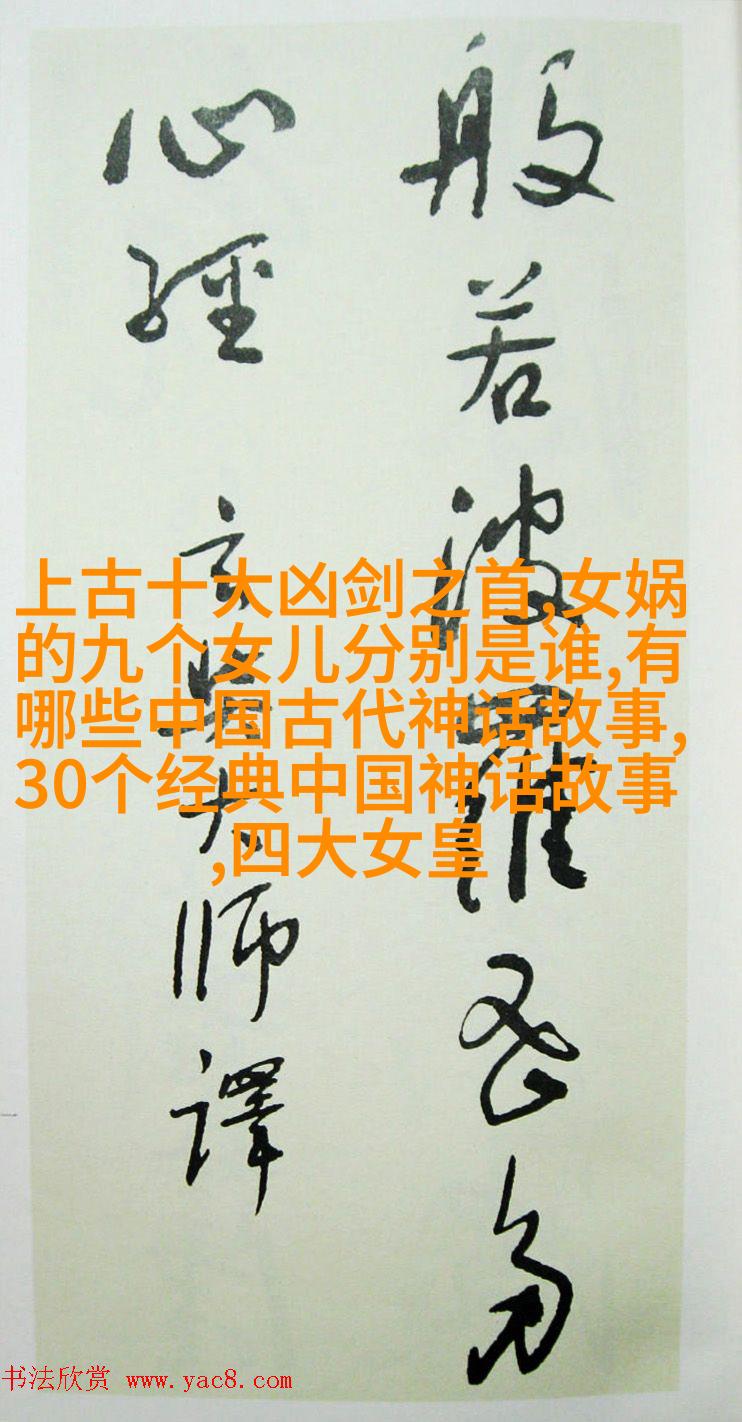 般若波羅蜜多
心經 玄奘大师譯
上古十大凶剑之首,女娲
的九个女儿分别是谁,有
哪些中国古代神话故事,
30个经典中国神话故事
,四大女皇
书法欣赏 www.yac8.com